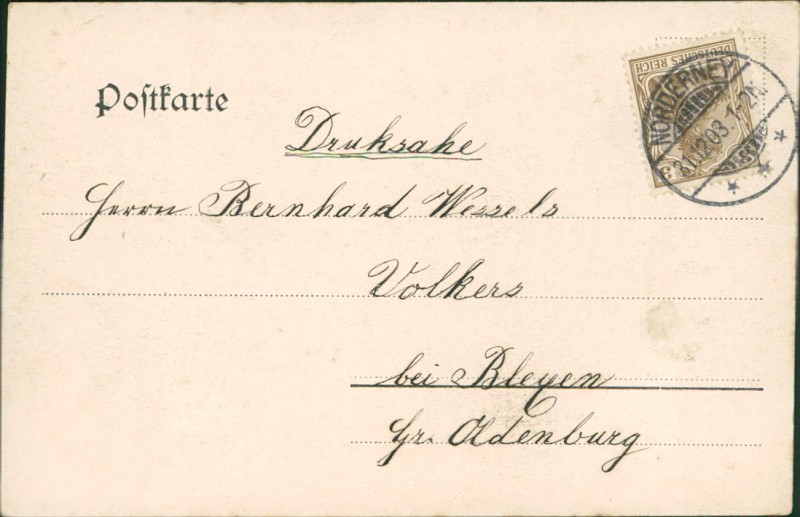 Postkarte
DEUTSCHES REICH
3
NORDERNEY
31.12.03. 1-2N.
Druksahe
Herrn Bernhard Wessels
Volkers
bei Bleyen
Gr. Oldenburg